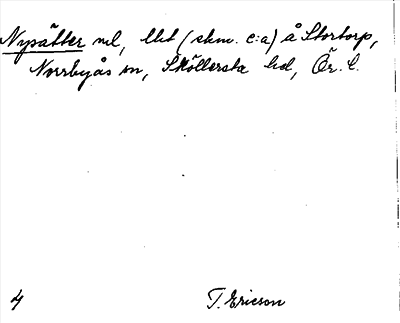 Nysätter nl, lht (ekon. c:a) å Stortorp,
Norrbyås sn, Sköllersta hd, Ör. l.
4 T. Ericson